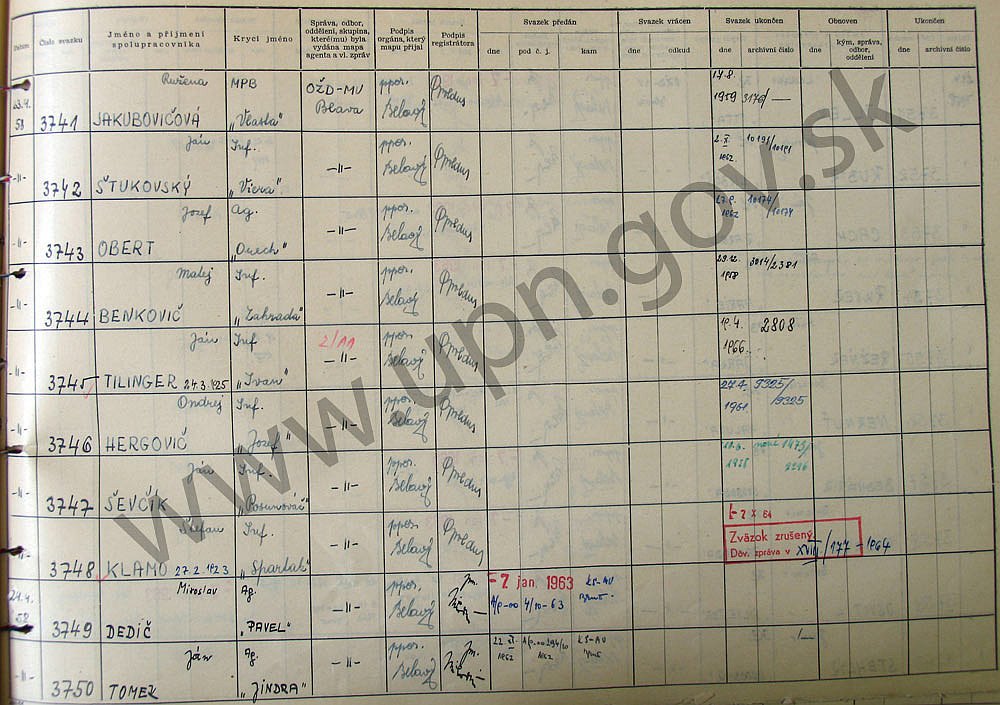 Datum
Číslo svazku
Jméno a příjmení
spolupracovníka
Krycí jméno
Správa, odbor,
oddělení, skupina,
které(mu) byla
vydána mapa
agenta a vl. zpráv
Podpis
orgána, který
mapu přijal
Podpis
registrátora
Svazek předán
dne
pod č. j.
kam
Svazek vrácen
dne
odkud
Svazek ukončen
dne
archivní číslo
Obnoven
dne
kým, správa,
odbor,
oddělení
Ukončen
dne
archivní číslo
23.4. 58 3741 Ružena JAKUBOVIČOVÁ MPB „Vlasta" OŽD-MV Blava ppor. Belavý 17.8. 1959 3176/—
-11- 3742 Ján ŠTUKOVSKÝ Inf. „Viera" -11- ppor. Belavý 2. XI. 1962 10191/10191
-11- 3743 Jozef OBERT Ag. „Orech" -11- ppor. Belavý 1962 10174/10174
-11- 3744 Matej BENKOVIČ Inf. „Zahrada" -11- ppor. Belavý 29.12. 1958 3014/2381
-11- 3745 Ján TILINGER 24.3.1925 Inf „Ivan" 2/11 -11- ppor. Belavý 19.4. 1966. 2808
-11- 3746 Ondrej HERGOVIČ Inf. „Jozef" -11- ppor. Belavý 27.4. 1961 9325/9325
-11- 3747 Ján ŠEVČÍK Inf. „Posunováč" -11- ppor. Belavý 1958 1473/2296
-11- 3748 Štefan KLAMO 27.2.1923 Inf. „Spartak" -11- ppor. Belavý -2 X 61
Zväzok zrušený
Dov. zpráva v XVIII/177-1964
24.4. 58 3749 Miroslav DEDIČ Ag. „PAVEL" -11- ppor. Belavý -7 jan. 1963 A/p-00 4/10-63 KS-MV
-11- 3750 Ján TOMEK Ag. „JINDRA" -11- ppor. Belavý 22 XI 1962 KS-MV
www.upn.gov.sk